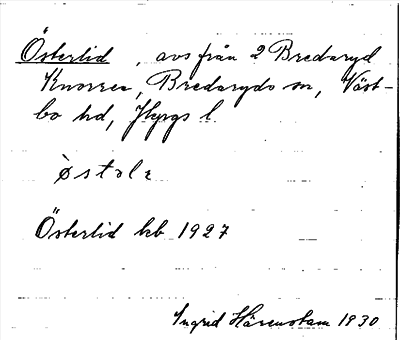 Österlid, avs från 2 Bredaryd
Knorren, Bredaryds sn, Väst-
bo hd, Jkpgs l.
Österlid kb 1927
Ingrid Härenstam 1930